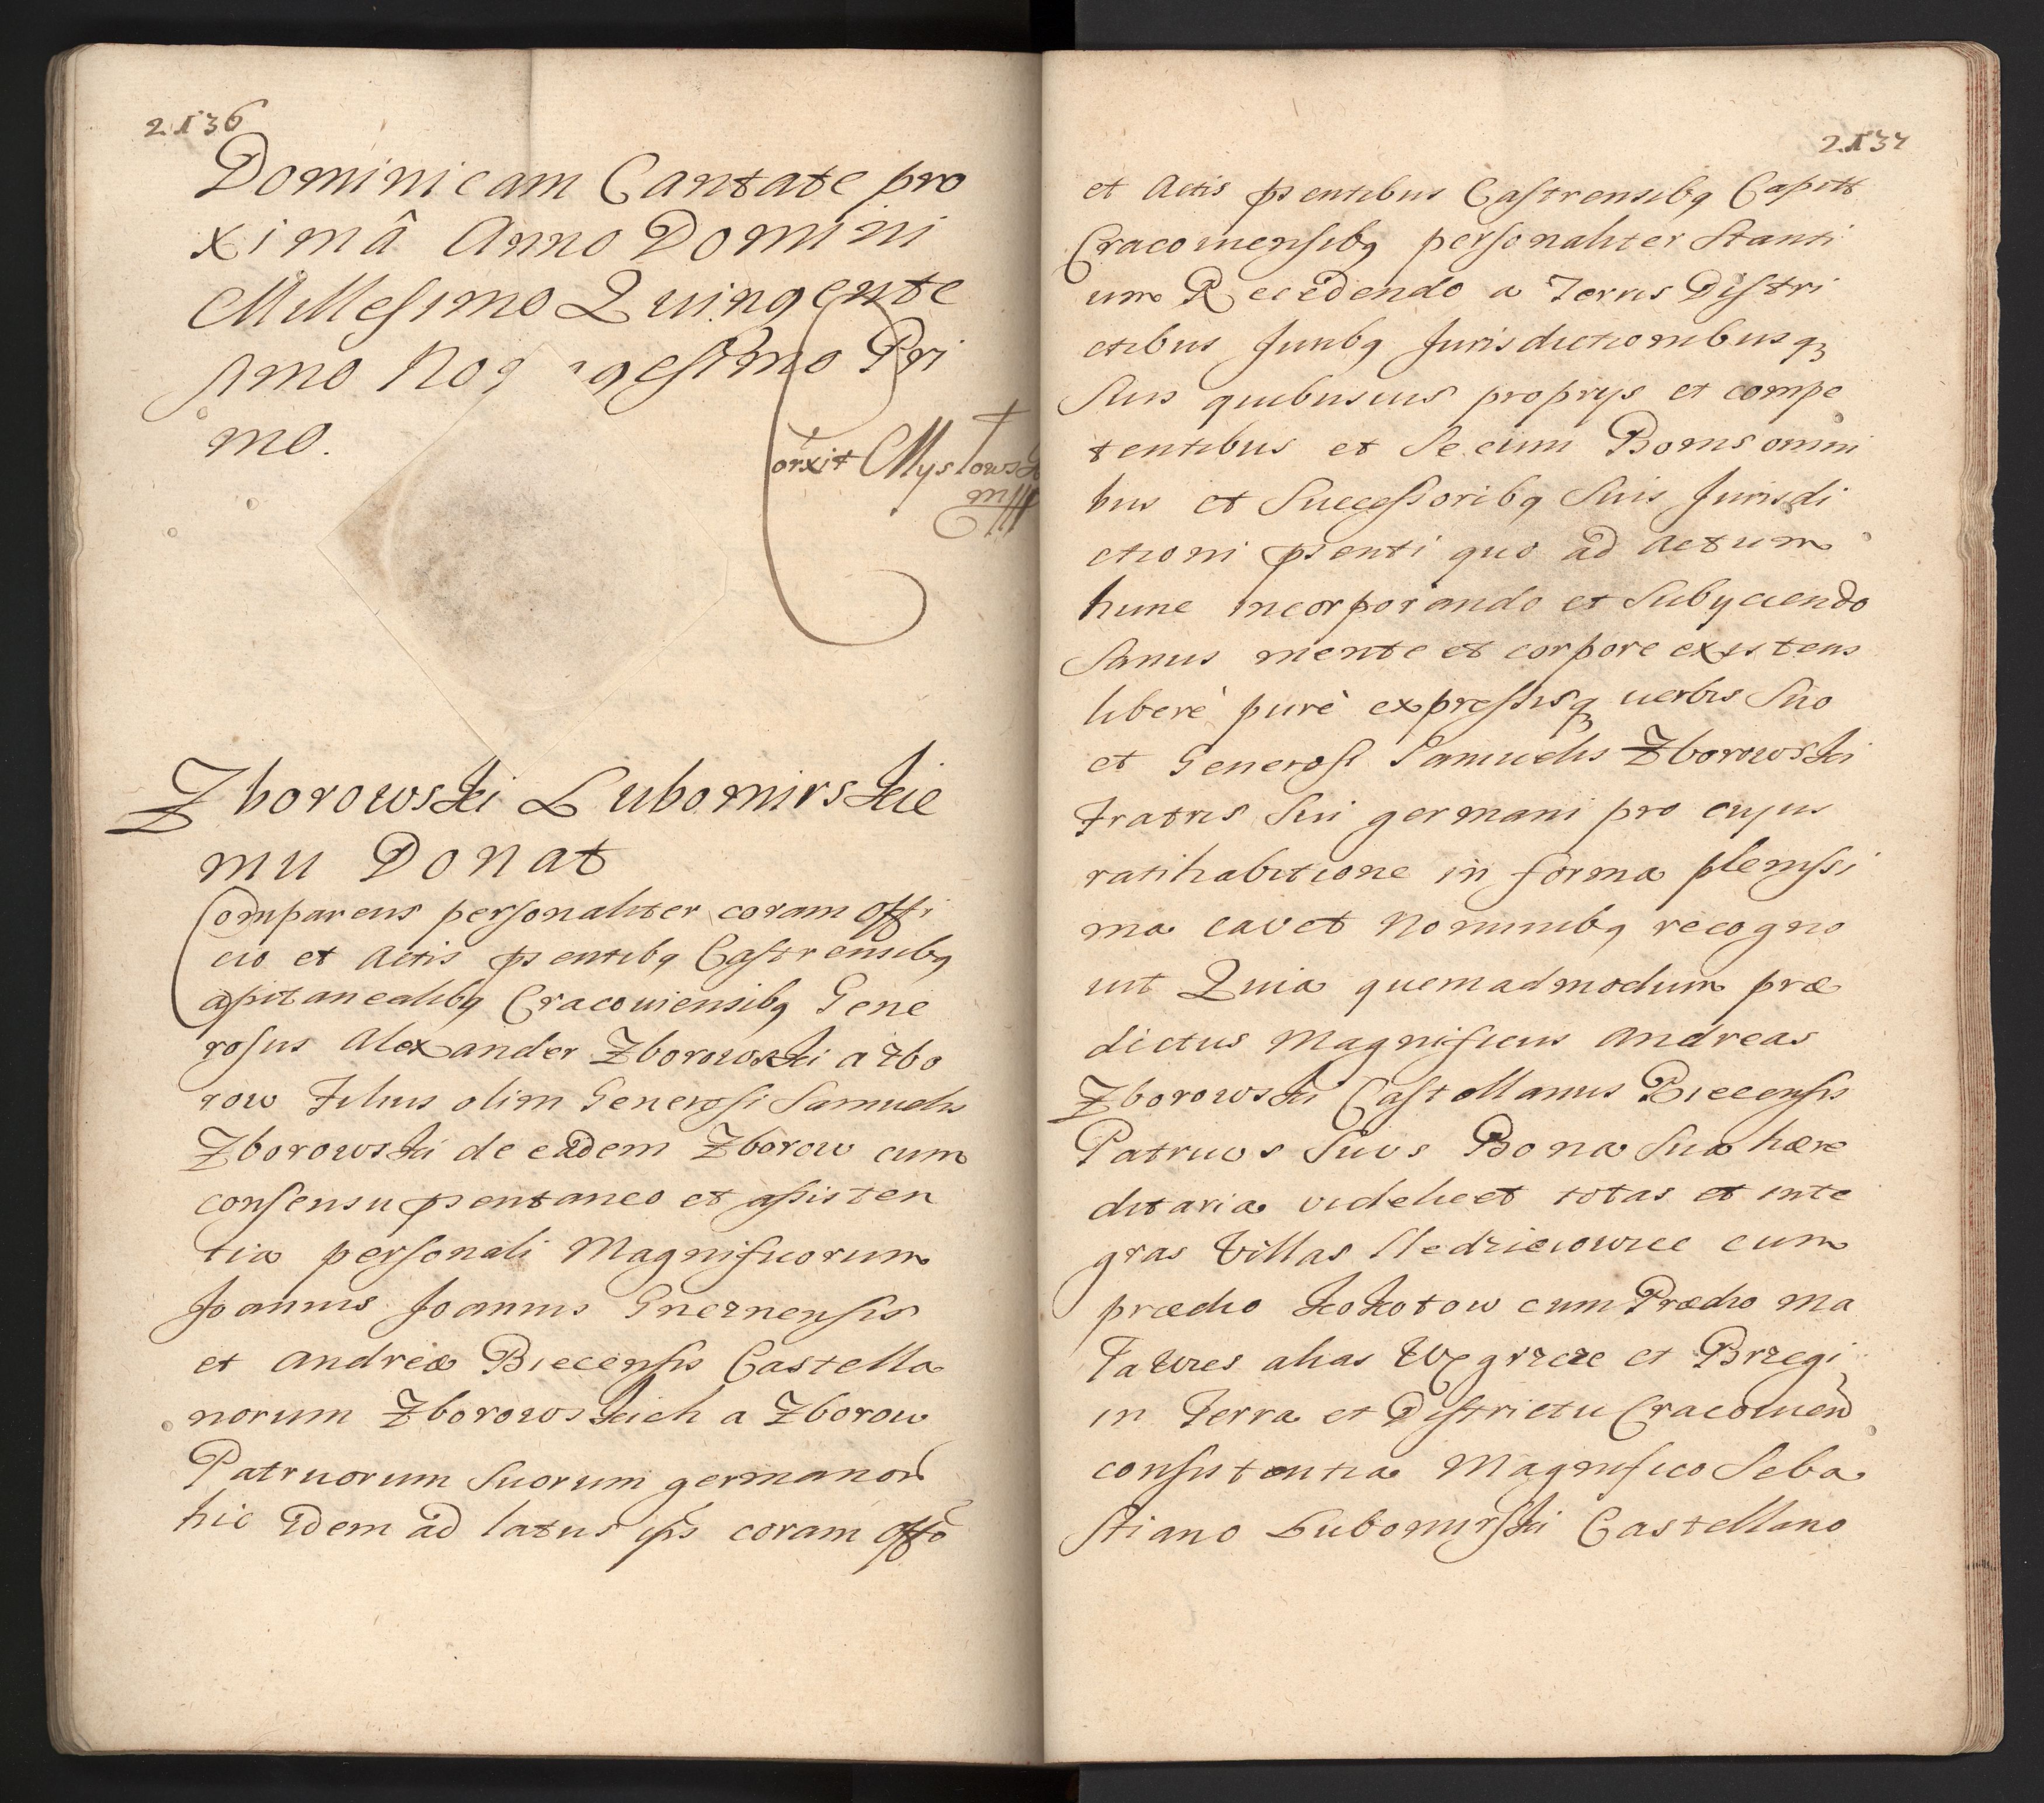 2136
Dominicam Cantate pro
ximâ Anno Domini
Millesimo Quingente
simo No gesimo Pri
mo.
orxit Mysłowsk
mpp
Zborowski Lubomirskie
mu Donat
Comparens personaliter coram offi
cio et Actis psentibq Castrensibq
Capitanealibq Cracouiensibq Gene
rosus Alexander Zborowski a Zbo
row Filius olim Generosi Samuelis
Zborowski de eadem Zborow cum
consensu psentaneo et assisten
tia personali Magnificorum
Joannis Joannis Gneznensis
et Andreæ Biecensis Castella
norum Zborowskich a Zborow
Patruorum Suorum germanor
hic idem ad latus ips coram offo
2137
et Actis psentibus Castrensibq Capitt
Cracouiensibq personaliter stanti
um Recedendo a Terris Distri
ctibus Juribq Jurisdictionibusq
Suis quibusuis proprys et compe
tentibus et Se cum Bonis omni
bus et Successoribq Suis Jurisdi
ctioni psenti quo ad actum
hunc incorporando et Subyciendo
Sanus mente et corpore existens
liberè purè expressisq uerbis Suo
et Generosi Samuelis Zborowski
Fratris Sui germani pro cujus
ratihabitione in forma plenissi
ma cavet Nominibq recogno
uit Quia quemadmodum præ
dictus Magnificus Andreas
Zborowski Castellanus Biecensis
Patruus Suus Bona Sua hære
ditaria videlicet totas et inte
gras Villas Sledzieiowice cum
prædio Kokotow cum Prædio Ma
Ta Wies alias Węgrzcze et Brzegi
in Terra et Districtu Cracouien
consistentia Magnifico Seba
stiano Lubomirski Castellano